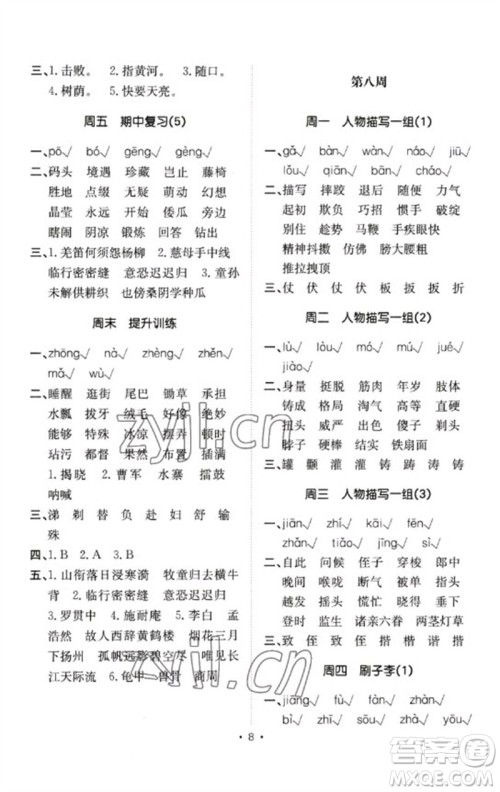 三、1.击败。 2.指黄河。 3.随口。
4.树荫。 5.快要天亮。
周五 期中复习(5)
一、pō√ bó√ gēng√ gèng√
二、码头 境遇 珍藏 岂止 藤椅
胜地 点缀 无疑 萌动 幻想
晶莹 永远 开始 倭瓜 旁边
瞎闹 阴凉 锻炼 回答 钻出
三、1.羌笛何须怨杨柳 2.慈母手中线
临行密密缝 意恐迟迟归 3.童孙
未解供耕织 也傍桑阴学种瓜
周末 提升训练
一、zhōng√ nà√ zhèng√ zhěn√
mǎ√ wù√
二、睡醒 逛街 尾巴 锄草 承担
水瓢 拔牙 绒毛 好像 绝妙
能够 特殊 冰凉 摆弄 顿时
玷污 都督 果然 布置 遮盖
1.揭晓 2.曹军 水寨 擂鼓
呐喊
三、涕 剃 替 负 赴 妇 舒 输
殊
四、1.B 2.A 3.B
五、1.山衔落日浸寒漪 牧童归去横牛
背 2.意恐迟迟归 临行密密缝
3.罗贯中 4.施耐庵 5.李白 孟
浩然 故人西辞黄鹤楼 烟花三月
下扬州 孤帆远影碧空尽 唯见长
江天际流 6.龟甲 兽骨 商周
第八周
周一 人物描写一组(1)
一、gǎ√ bàn√ wàn√ náo√
fú√ qiān√ bǎng√ chāo√
二、描写 摔跤 退后 随便 力气
起初 欺负 巧招 惯手 破绽
别住 趁势 马车 手疾眼快
精神抖擞 仿佛 膀大腰粗
推拉拽顶
三、仗 伏 仗 伏 板 扳 扳 折
周二 人物描写一组(2)
一、lù√ lo√ mó√ mú√ jué√
jiào√
二、身量 挺脱 筋肉 年岁 肢体
铸成 格局 颧骨 光头 肥胖
扭头 威严 出色 傻子 刹那
脖子 硬棒 结实 铁扇面
三、罐 颧 灌 铸 涛 踌 涛 铸
周三 人物描写一组(3)
一、jiān√ zhí√ kāi√ fēn√
zhǎn√ zǎo√ qiǎn√ xiàn√
二、自此 问候 侄子 穿梭 郎中
晚间 喉咙 哪能 伸着 指头
越发 吊唁 慌忙 忙乱 莫不
登时 监生 诸亲六眷 两茎灯草
三、致 侄 致 侄 楷 楷 谐 揩
周四 刷子李(1)
一、jiǎng√ fù√ tàn√ zhàn√
bì√ zǐ√ shuā√ zhàn√
8